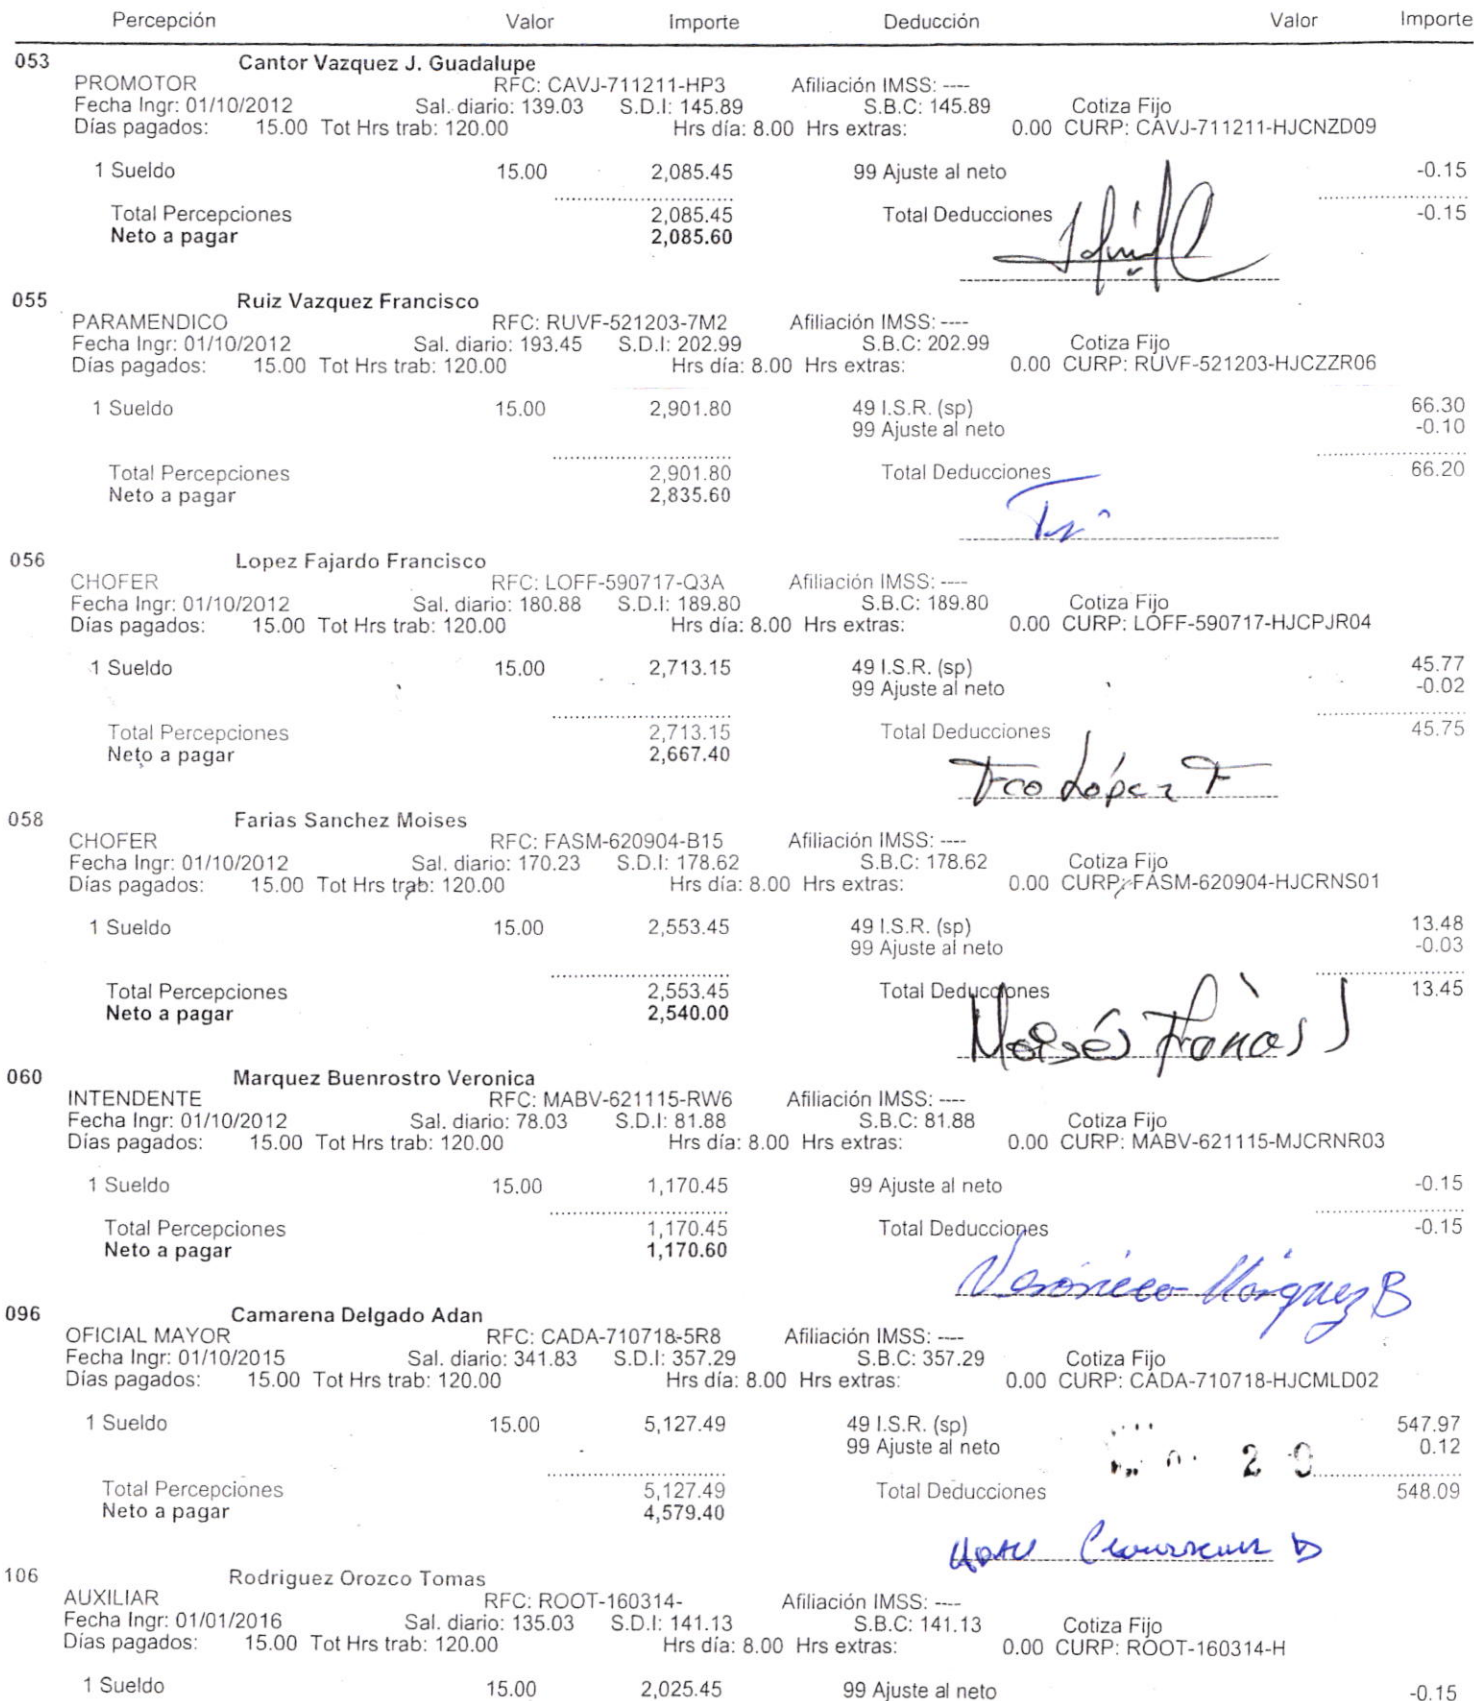 Percepción Valor Importe Deducción Valor Importe
053 Cantor Vazquez J. Guadalupe
PROMOTOR RFC: CAVJ-711211-HP3 Afiliación IMSS: ----
Fecha Ingr: 01/10/2012 Sal. diario: 139.03 S.D.I: 145.89 S.B.C: 145.89 Cotiza Fijo
Días pagados: 15.00 Tot Hrs trab: 120.00 Hrs día: 8.00 Hrs extras: 0.00 CURP: CAVJ-711211-HJCNZD09
1 Sueldo 15.00 2,085.45 99 Ajuste al neto -0.15
Total Percepciones 2,085.45 Total Deducciones -0.15
Neto a pagar 2,085.60
055 Ruiz Vazquez Francisco
PARAMENDICO RFC: RUVF-521203-7M2 Afiliación IMSS: ----
Fecha Ingr: 01/10/2012 Sal. diario: 193.45 S.D.I: 202.99 S.B.C: 202.99 Cotiza Fijo
Días pagados: 15.00 Tot Hrs trab: 120.00 Hrs día: 8.00 Hrs extras: 0.00 CURP: RUVF-521203-HJCZZR06
1 Sueldo 15.00 2,901.80 49 I.S.R. (sp) 66.30
99 Ajuste al neto -0.10
Total Percepciones 2,901.80 Total Deducciones 66.20
Neto a pagar 2,835.60
056 Lopez Fajardo Francisco
CHOFER RFC: LOFF-590717-Q3A Afiliación IMSS: ----
Fecha Ingr: 01/10/2012 Sal. diario: 180.88 S.D.I: 189.80 S.B.C: 189.80 Cotiza Fijo
Días pagados: 15.00 Tot Hrs trab: 120.00 Hrs día: 8.00 Hrs extras: 0.00 CURP: LOFF-590717-HJCPJR04
1 Sueldo 15.00 2,713.15 49 I.S.R. (sp) 45.77
99 Ajuste al neto -0.02
Total Percepciones 2,713.15 Total Deducciones 45.75
Neto a pagar 2,667.40
Fco López F
058 Farias Sanchez Moises
CHOFER RFC: FASM-620904-B15 Afiliación IMSS: ----
Fecha Ingr: 01/10/2012 Sal. diario: 170.23 S.D.I: 178.62 S.B.C: 178.62 Cotiza Fijo
Días pagados: 15.00 Tot Hrs trab: 120.00 Hrs día: 8.00 Hrs extras: 0.00 CURP: FASM-620904-HJCRNS01
1 Sueldo 15.00 2,553.45 49 I.S.R. (sp) 13.48
99 Ajuste al neto -0.03
Total Percepciones 2,553.45 Total Deducciones 13.45
Neto a pagar 2,540.00
Moisés Farias S
060 Marquez Buenrostro Veronica
INTENDENTE RFC: MABV-621115-RW6 Afiliación IMSS: ----
Fecha Ingr: 01/10/2012 Sal. diario: 78.03 S.D.I: 81.88 S.B.C: 81.88 Cotiza Fijo
Días pagados: 15.00 Tot Hrs trab: 120.00 Hrs día: 8.00 Hrs extras: 0.00 CURP: MABV-621115-MJCRNR03
1 Sueldo 15.00 1,170.45 99 Ajuste al neto -0.15
Total Percepciones 1,170.45 Total Deducciones -0.15
Neto a pagar 1,170.60
Verónica Márquez B
096 Camarena Delgado Adan
OFICIAL MAYOR RFC: CADA-710718-5R8 Afiliación IMSS: ----
Fecha Ingr: 01/10/2015 Sal. diario: 341.83 S.D.I: 357.29 S.B.C: 357.29 Cotiza Fijo
Días pagados: 15.00 Tot Hrs trab: 120.00 Hrs día: 8.00 Hrs extras: 0.00 CURP: CADA-710718-HJCMLD02
1 Sueldo 15.00 5,127.49 49 I.S.R. (sp) 547.97
99 Ajuste al neto 0.12
Total Percepciones 5,127.49 Total Deducciones 548.09
Neto a pagar 4,579.40
Adan Camarena D
106 Rodriguez Orozco Tomas
AUXILIAR RFC: ROOT-160314- Afiliación IMSS: ----
Fecha Ingr: 01/01/2016 Sal. diario: 135.03 S.D.I: 141.13 S.B.C: 141.13 Cotiza Fijo
Días pagados: 15.00 Tot Hrs trab: 120.00 Hrs día: 8.00 Hrs extras: 0.00 CURP: ROOT-160314-H
1 Sueldo 15.00 2,025.45 99 Ajuste al neto -0.15